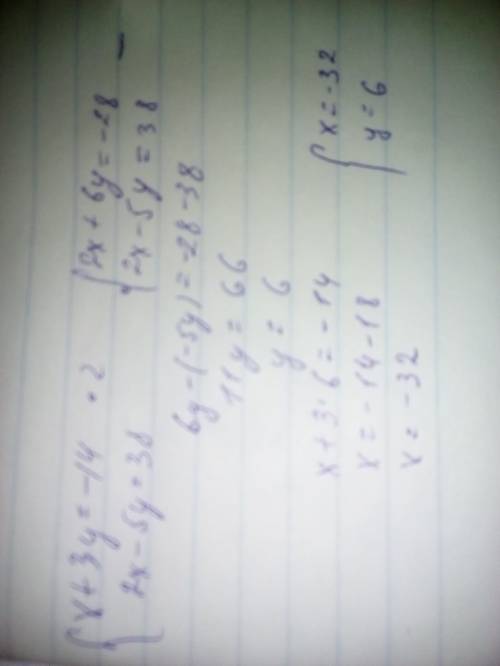 { x + 3y = -14 · 2
2x - 5y = 38
{ 2x + 6y = -28
2x - 5y = 38 -
6y - (-5y) = -28 - 38
11y = 66
y = 6
x + 3 · 6 = -14
x = -14 - 18
x = -32
{ x = -32
y = 6